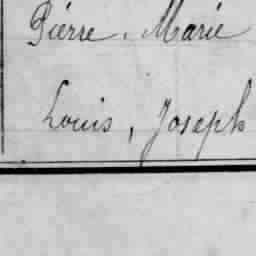 Piérre, Marié
Louis, Joseph